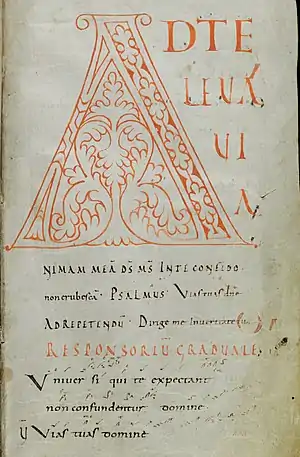 AD TE
LEUA
UI
A
NIMAM MEĀ D̄S M̄S INTE CONFIDO
non erubescā · PSALMUS · Vias tuas dn̄e
AD REPETENDŪ · Dirige me Inueritate
RESPONSORIŪ GRADUALE
Vniuer si qui te expectant
non confundentur domine
V̄ Vias tuas domine